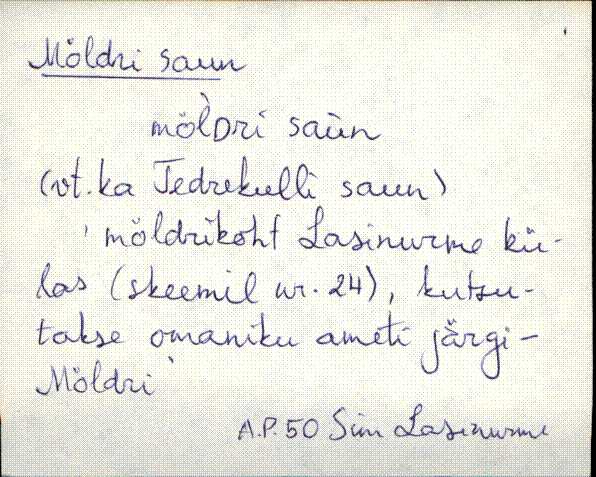 Möldri saun
möl̀Dri saùn
(vt. ka Tedrekulli saun)
' möldrikoht Lasinurme kü-
las (skeemil nr. 24), kutsu-
takse omaniku ameti järgi –
Möldri '
A.P. 50 Sim Lasinurme